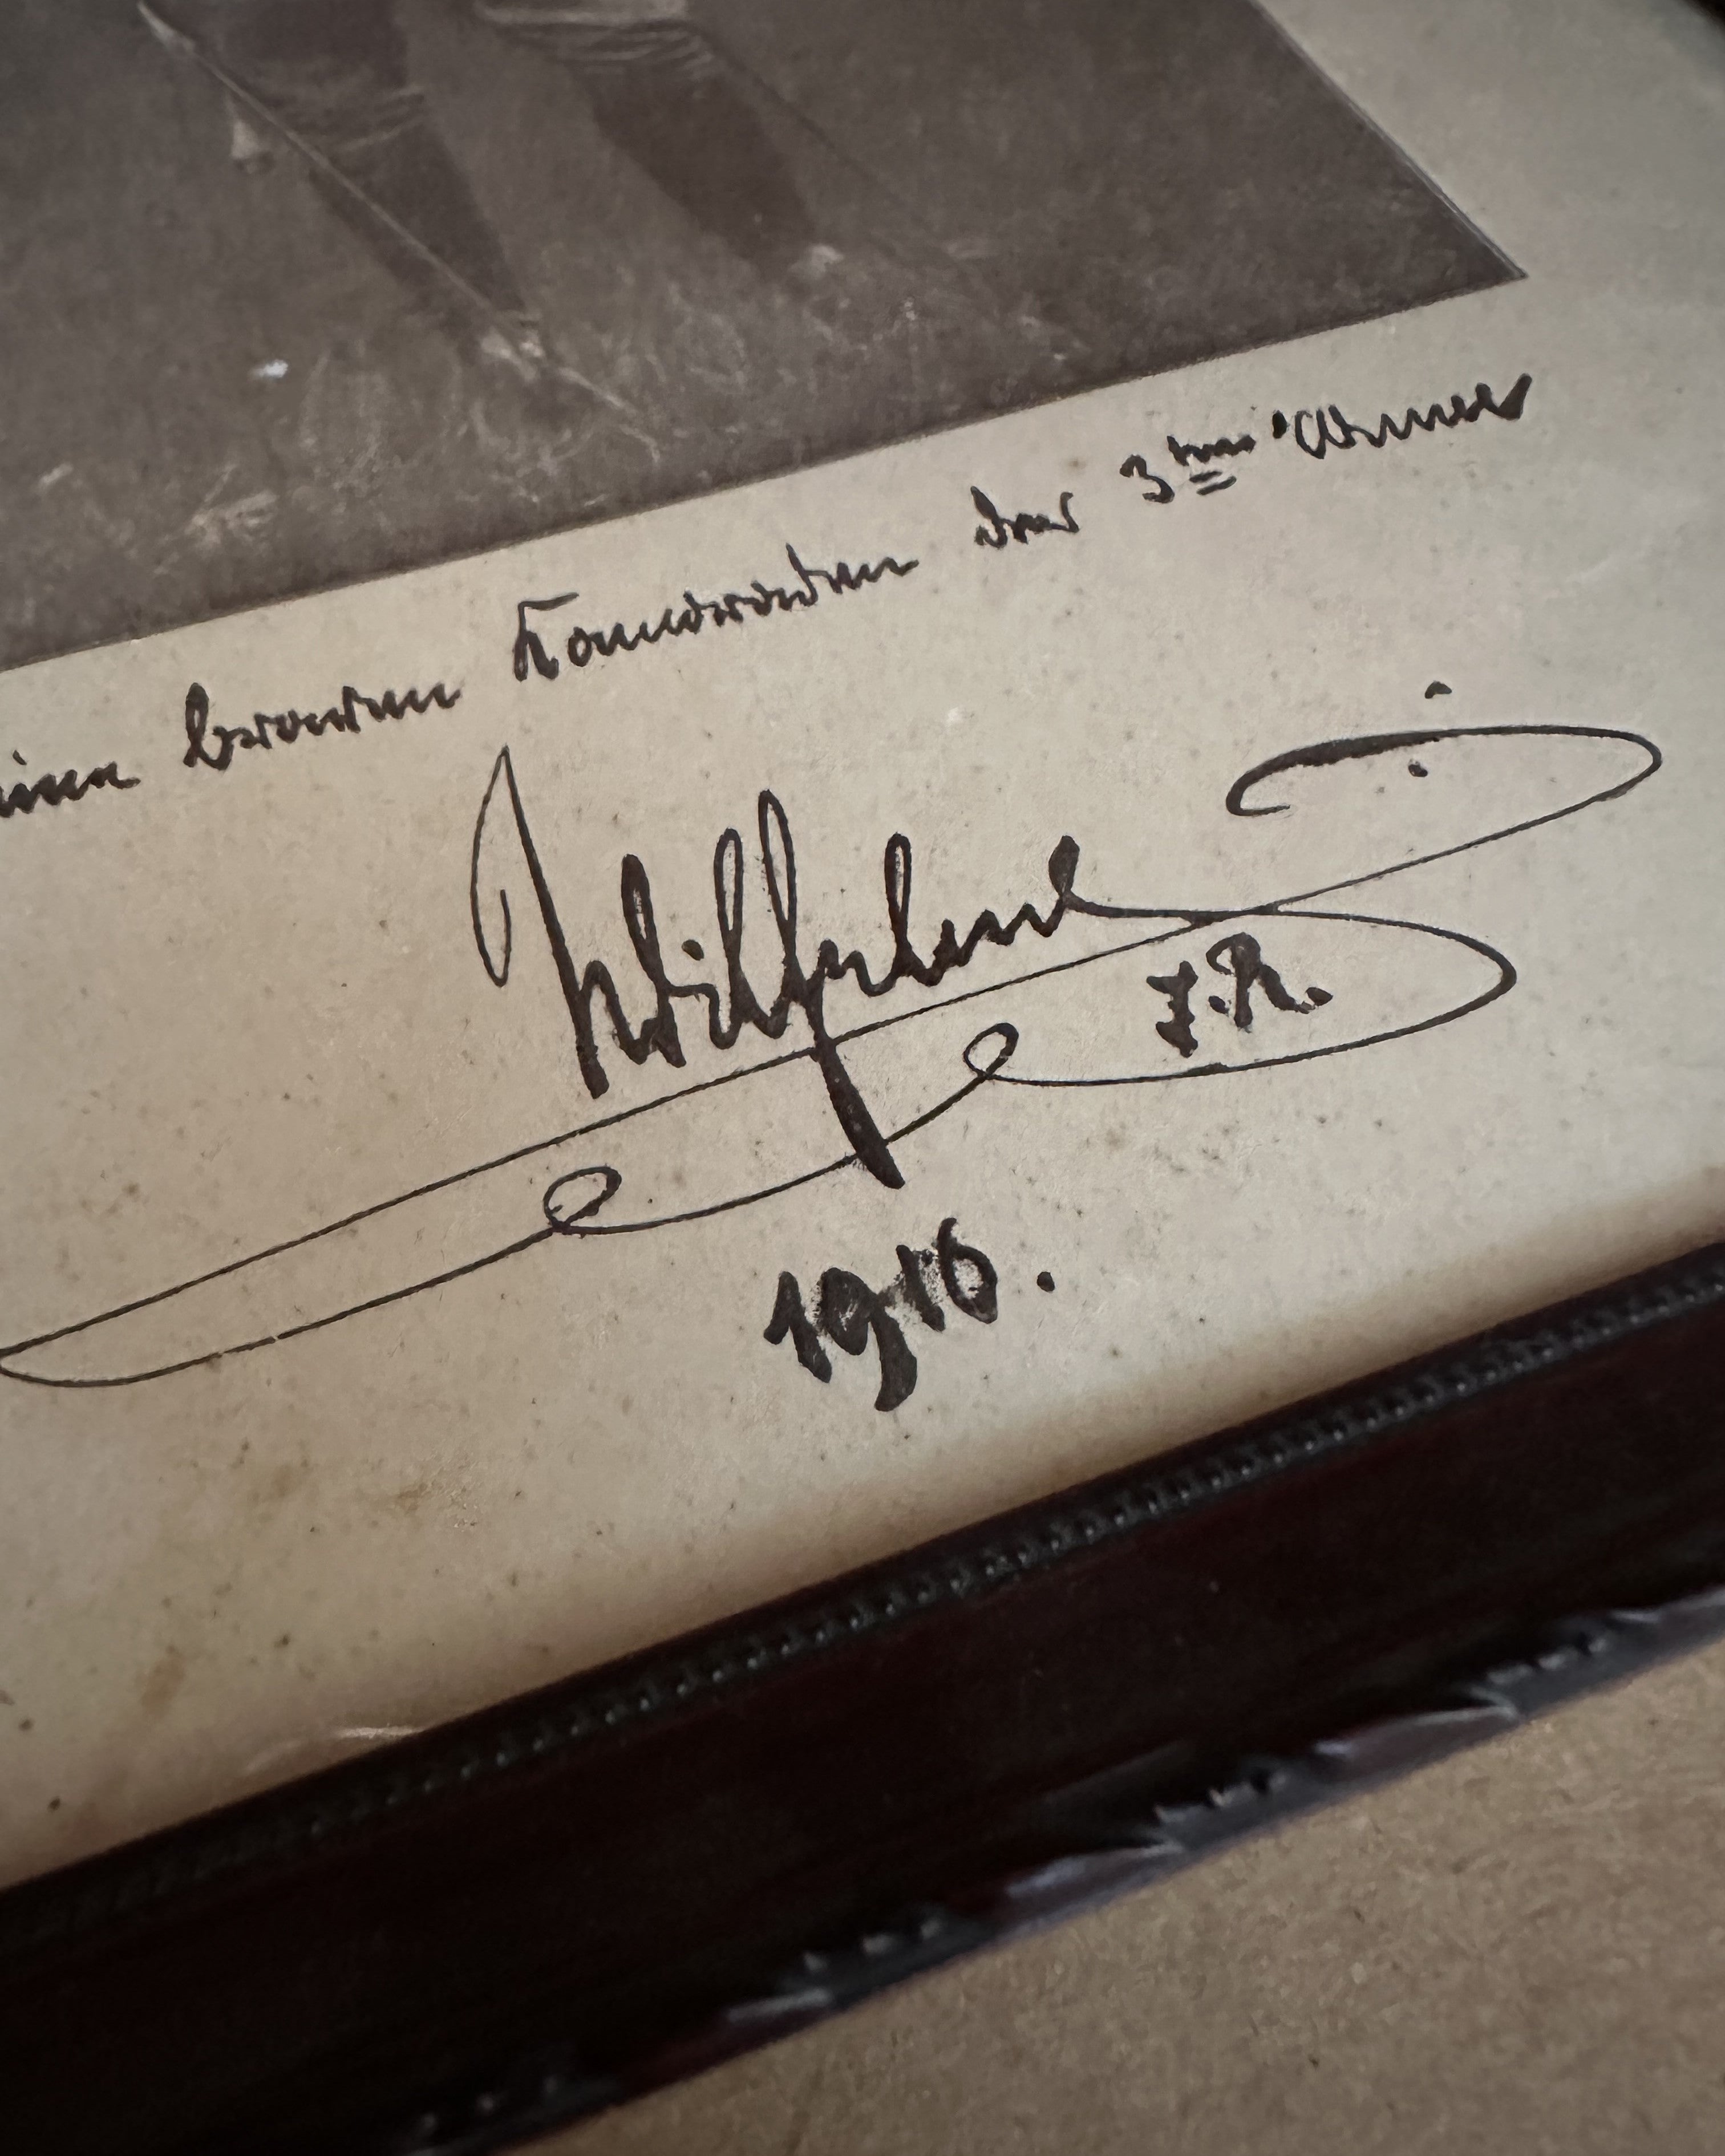 braven Kameraden der 3ten Armee
Wilhelm
I.R.
1916.